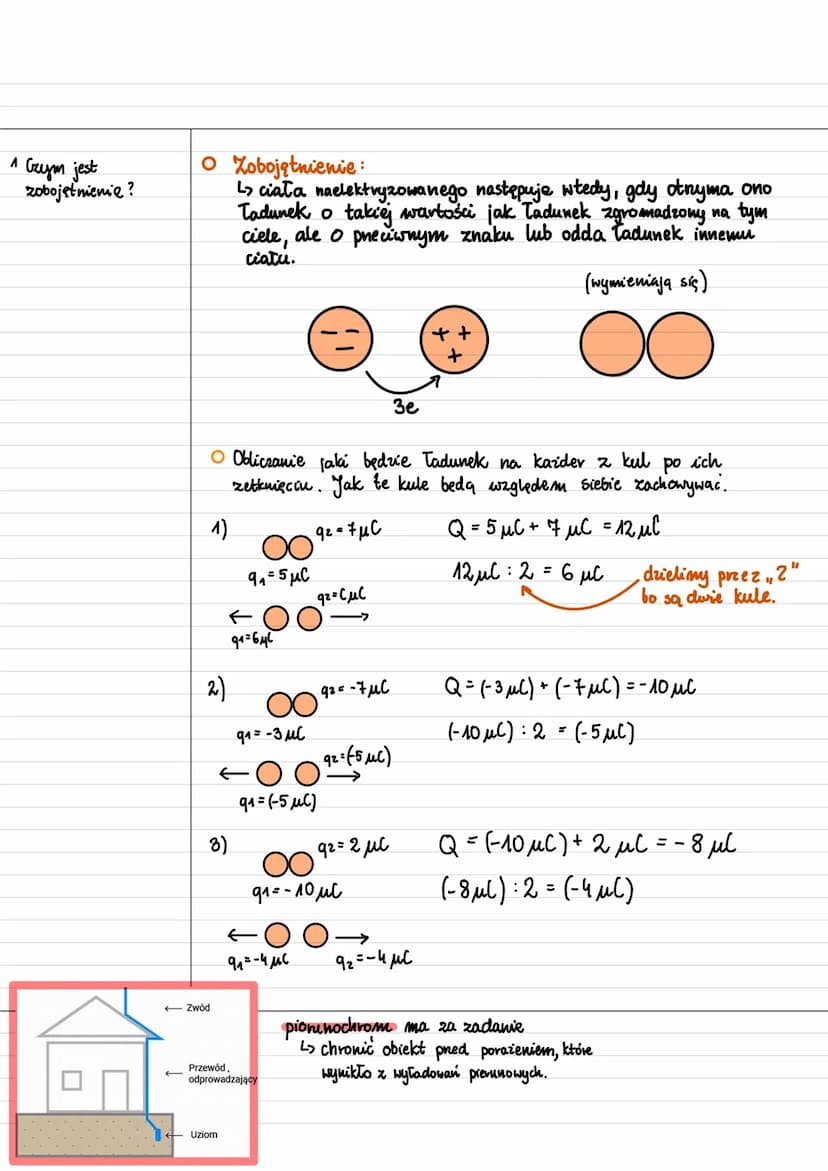 1 Czym jest
zobojętnienie?
Zobojętnienie:
↳ ciała naelektryzowanego następuje wtedy, gdy otrzyma ono
ładunek o takiej wartości jak ładunek zgromadzony na tym
ciele, ale o przeciwnym znaku lub odda ładunek innemu
ciału.
(wymieniają się)
− − −
+ + +
3e
Obliczanie jaki będzie ładunek na każdev z kul po ich
zetknięciu. Jak te kule będą względem siebie zachowywać.
1)
q2 = 7 μC
Q = 5 μC + 7 μC = 12 μC
q1 = 5 μC
12 μC : 2 = 6 μC
dzielimy przez „2"
bo są dwie kule.
q2 = 6 μC
← →
q1 = 6 μC
2)
q2 = -7 μC
Q = (-3 μC) + (-7 μC) = -10 μC
q1 = -3 μC
(-10 μC) : 2 = (-5 μC)
q2 = (-5 μC)
← →
q1 = (-5 μC)
3)
q2 = 2 μC
Q = (-10 μC) + 2 μC = -8 μC
q1 = -10 μC
(-8 μC) : 2 = (-4 μC)
← →
q1 = -4 μC q2 = -4 μC
← Zwód
← Przewód
odprowadzający
← Uziom
piorunochron ma za zadanie
↳ chronić obiekt przed porażeniem, które
wynikło z wyładowań piorunowych.